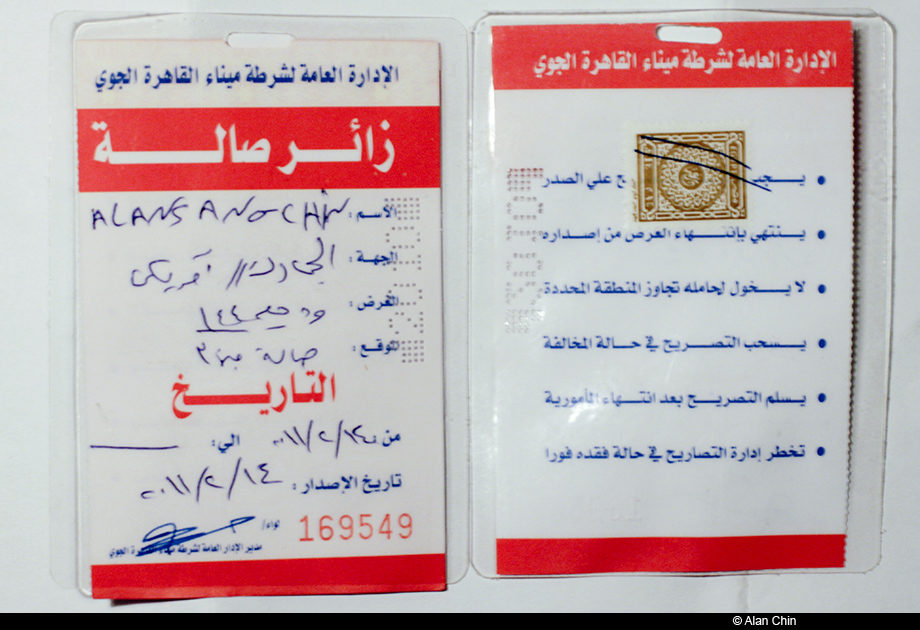 الإدارة العامة لشرطة ميناء القاهرة الجوي
زائر صالة
الاسم :
الجهة :
الغرض :
الموقع :
التاريخ
من ٢٠١١/٢/١٤ الي :
تاريخ الإصدار : ٢٠١١/٢/١٤
لواء/
169549
مدير الإدارة العامة لشرطة ميناء القاهرة الجوي
الإدارة العامة لشرطة ميناء القاهرة الجوي
يجب علي الصدر
ينتهي بإنتهاء الغرض من إصداره
لا يخول لحامله تجاوز المنطقة المحددة
يسحب التصريح في حالة المخالفة
يسلم التصريح بعد انتهاء المأمورية
تخطر إدارة التصاريح في حالة فقده فورا
© Alan Chin